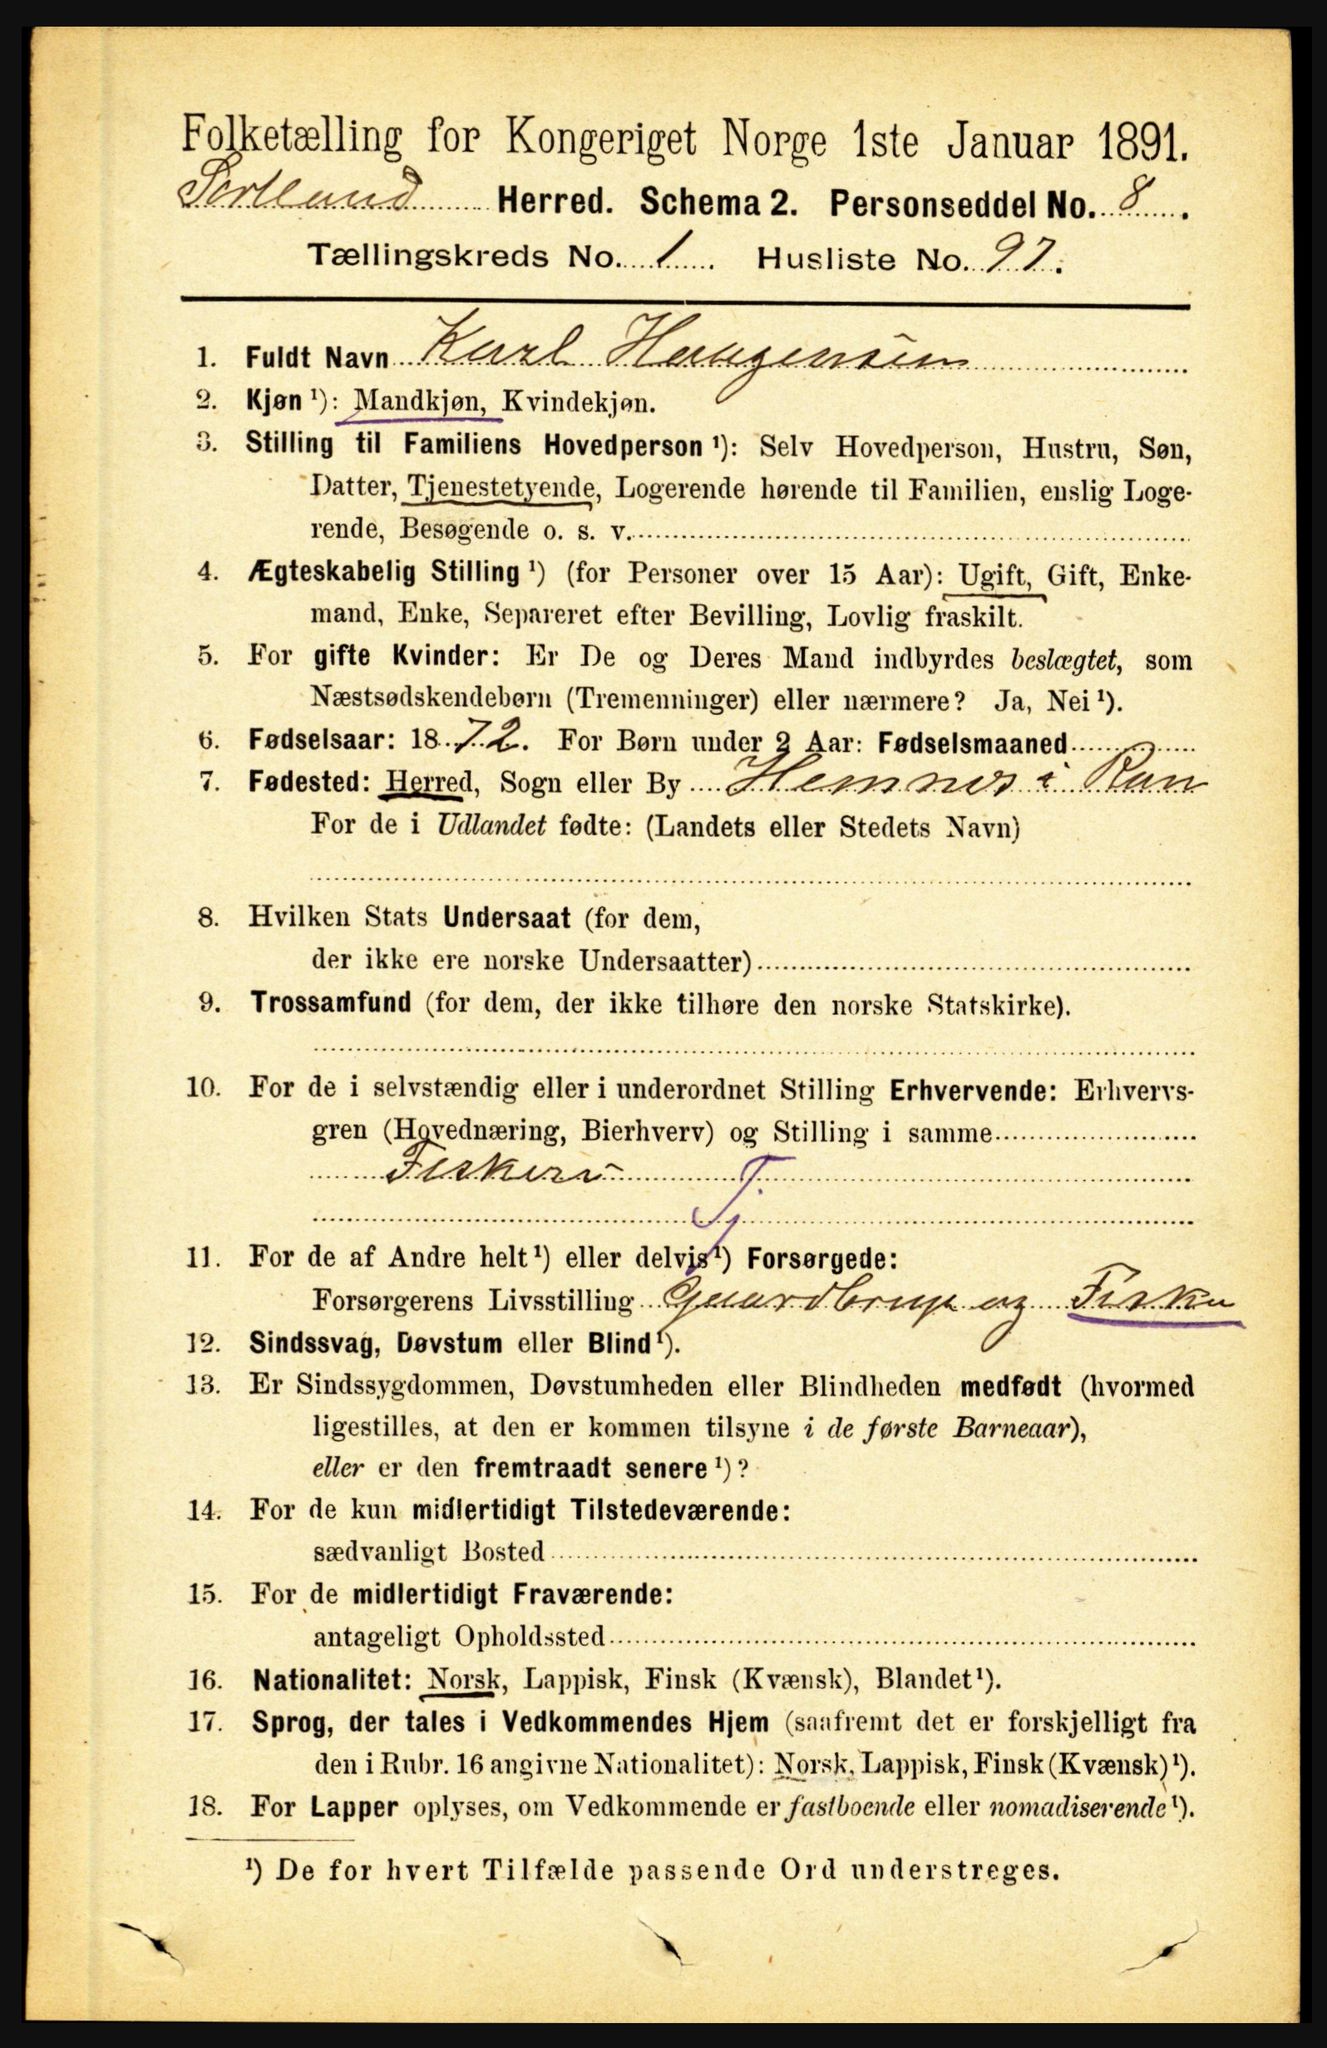 Folketælling for Kongeriget Norge 1ste Januar 1891.
Sortland Herred. Schema 2. Personseddel No. 8.
Tællingskreds No. 1. Husliste No. 97.
1. Fuldt Navn Karl Haagensen
2. Kjøn ¹): Mandkjøn, Kvindekjøn.
3. Stilling til Familiens Hovedperson ¹): Selv Hovedperson, Hustru, Søn,
Datter, Tjenestetyende, Logerende hørende til Familien, enslig Loge-
rende, Besøgende o. s. v.
4. Ægteskabelig Stilling ¹) (for Personer over 15 Aar): Ugift, Gift, Enke-
mand, Enke, Separeret efter Bevilling, Lovlig fraskilt.
5. For gifte Kvinder: Er De og Deres Mand indbyrdes beslægtet, som
Næstsødskendebørn (Tremenninger) eller nærmere? Ja, Nei ¹).
6. Fødselsaar: 1872. For Børn under 2 Aar: Fødselsmaaned
7. Fødested: Herred, Sogn eller By Hemnes i Ran
For de i Udlandet fødte: (Landets eller Stedets Navn)
8. Hvilken Stats Undersaat (for dem,
der ikke ere norske Undersaatter)
9. Trossamfund (for dem, der ikke tilhøre den norske Statskirke).
10. For de i selvstændig eller i underordnet Stilling Erhvervende: Erhvervs-
gren (Hovednæring, Bierhverv) og Stilling i samme
Fiskeri Tj
11. For de af Andre helt ¹) eller delvis ¹) Forsørgede:
Forsørgerens Livsstilling Gaardbrug og Fisker
12. Sindssvag, Døvstum eller Blind ¹).
13. Er Sindssygdommen, Døvstumheden eller Blindheden medfødt (hvormed
ligestilles, at den er kommen tilsyne i de første Barneaar),
eller er den fremtraadt senere ¹)?
14. For de kun midlertidigt Tilstedeværende:
sædvanligt Bosted
15. For de midlertidigt Fraværende:
antageligt Opholdssted
16. Nationalitet: Norsk, Lappisk, Finsk (Kvænsk), Blandet ¹).
17. Sprog, der tales i Vedkommendes Hjem (saafremt det er forskjelligt fra
den i Rubr. 16 angivne Nationalitet): Norsk, Lappisk, Finsk (Kvænsk) ¹).
18. For Lapper oplyses, om Vedkommende er fastboende eller nomadiserende ¹).
¹) De for hvert Tilfælde passende Ord understreges.